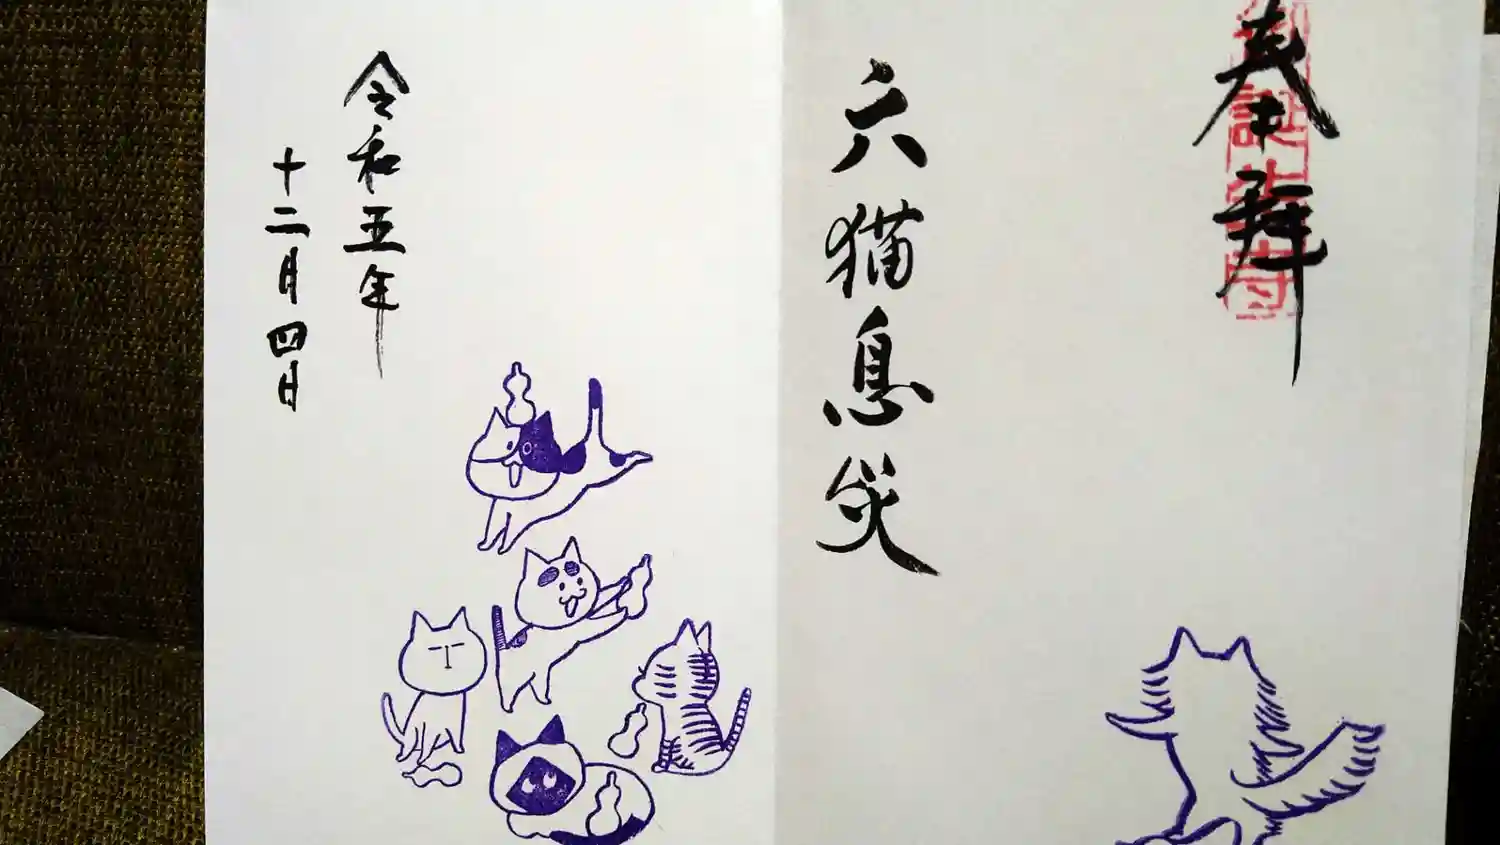 奉拝
誕生寺
六猫息災
令和五年
十二月四日